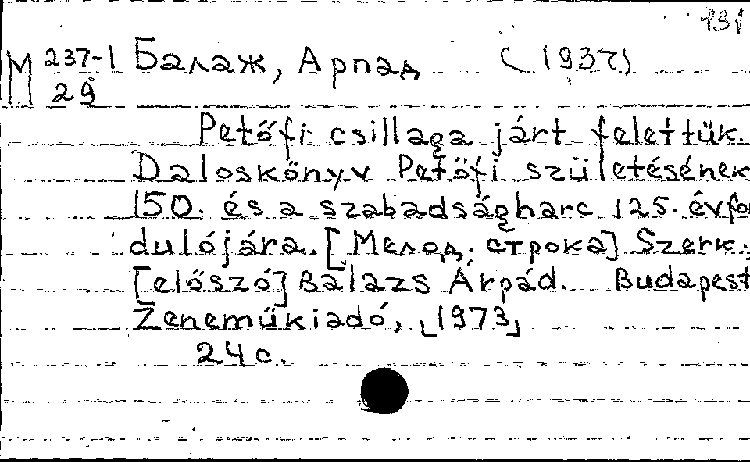 131
М 237-1 Балаж, Арпад (1937)
29
Petőfi csillaga járt felettük.
Daloskönyv Petőfi születésének
150. és a szabadságharc 125. évfor
dulójára. [Мелод. строка] Szerk.,
[előszó] Balázs Árpád. Budapest
Zeneműkiadó, [1973]
24 с.